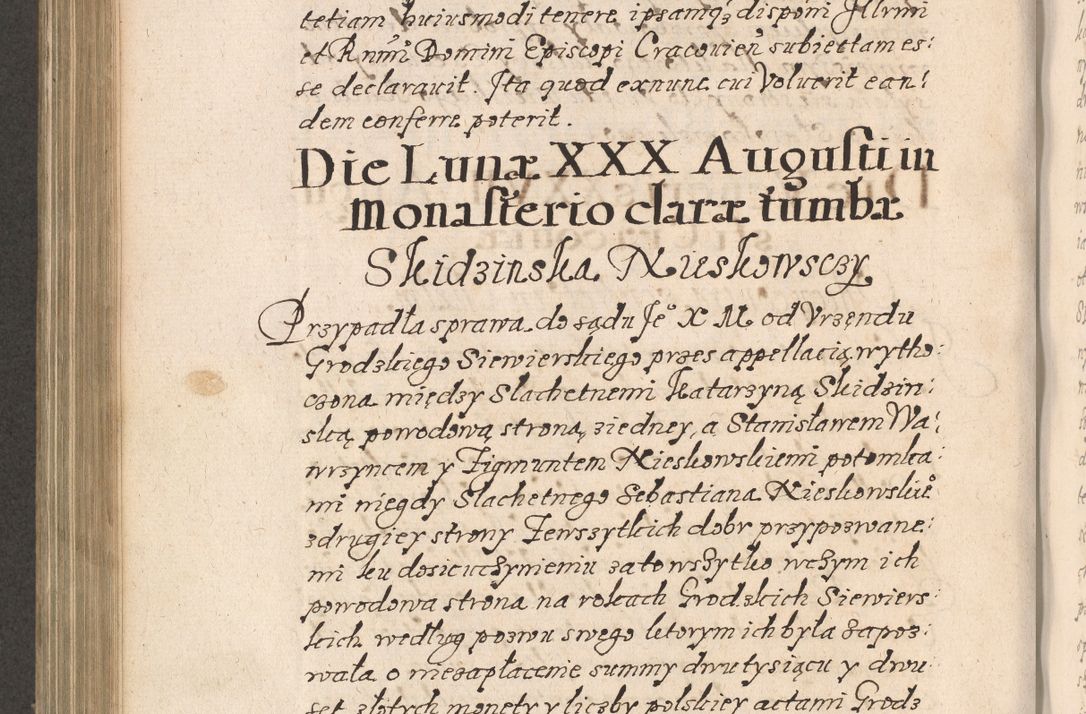 tetiam huiusmodi tenere ipsamq́ȝ disponi Jllrmi
et Rnḿi Domini Episcopi Cracovień subiectam es:
se declaravit. Jta quod exnunc cui Voluerit ean:
dem conferre poterit.
Die Lunæ XXX Augusti in
Monasterio claræ tumbæ
Skidzinska Nieskowsczy
Przypadła sprawa do sądu Jeº X M od Vrzęndu
Grodzkiego Siewierskiego przes appellacią wytho:
czona między Slachetnemi Katarzyną Skidzin:
ską powodową stroną ziedney, a Stanisławem Wa:
wrzyncem y Zigmuntem Nieskowskiemi potomka:
mi niegdy Slachetnego Sebastiana Nieskowskieº
zdrugiey strony Zewszytkich dobr przypozwane:
mi ku dosicuczynieniu zatowszytko wczym ich
powodowa strona na rokach Grodzkich Siewiers:
kich według pozwu swego ktorym ich była zapoz:
wała o niezapłacenie summy dwutysiącu y dwu
set złotych monety y liczby polskiey actami Grodz